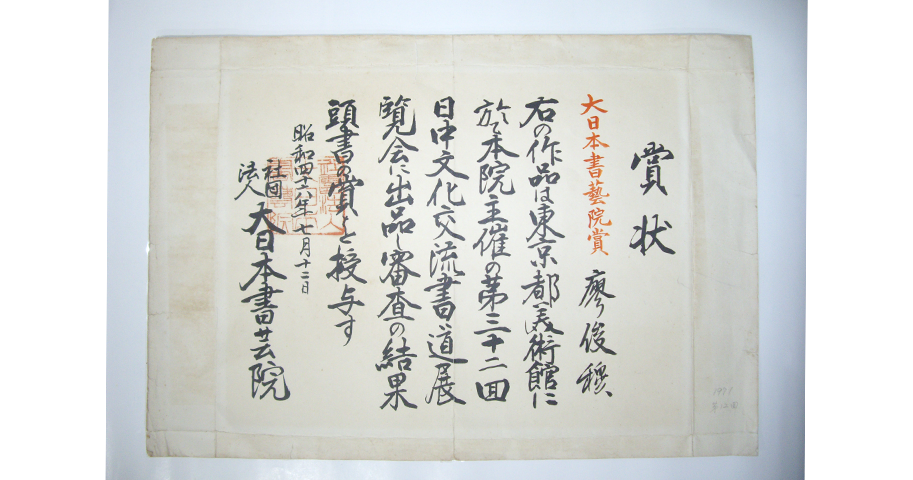 賞状
大日本書藝院賞 廖俊穆
右の作品は東京都美術館に
於て本院主催の第三十二回
日中文化交流書道展
覧会に出品し審査の結果
頭書の賞を授与す
昭和四十六年七月十二日
社団
法人 大日本書芸院
1971